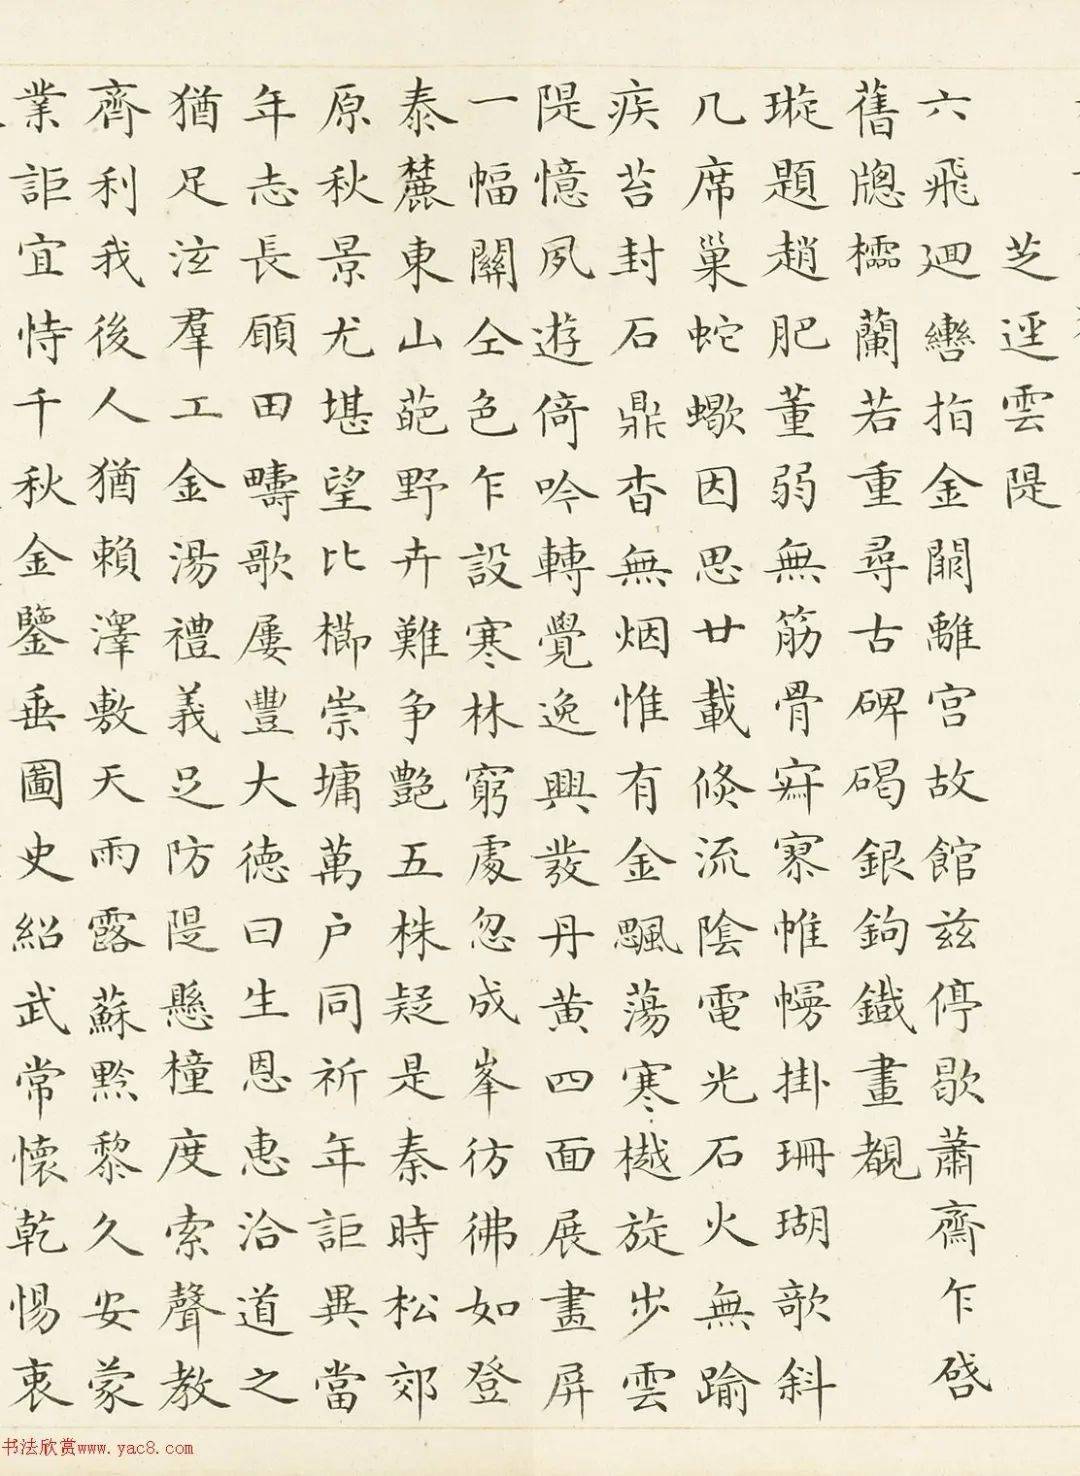 芝逕雲隄
六飛迴轡指金闕離宮故館茲停歇蕭齋乍啓
舊牕櫺蘭若重尋古碑碣銀鉤鐵畫覩
璇題趙肥董弱無筋骨寂寥帷幌掛珊瑚歌斜
几席巢蛇蠍因思廿載倐流陰電光石火無踰
疾苔封石鼎杳無烟惟有金飈蕩寒樾旋步雲
隄憶夙遊倚吟轉覺逸興發丹黃四面展畫屏
一幅關仝色乍設寒林窮處忽成峯彷彿如登
泰麓東山葩野卉難争艷五株疑是秦時松郊
原秋景尤堪望比櫛崇墉萬户同祈年詎異當
年志長願田疇歌屢豐大德曰生恩惠洽道之
猶足泫羣工金湯禮義足防隄懸橦度索聲教
齊利我後人猶賴澤敷天雨露蘇黔黎久安蒙
業詎宜恃千秋金鑒垂圖史紹武常懷乾惕衷
书法欣赏www.yac8.com